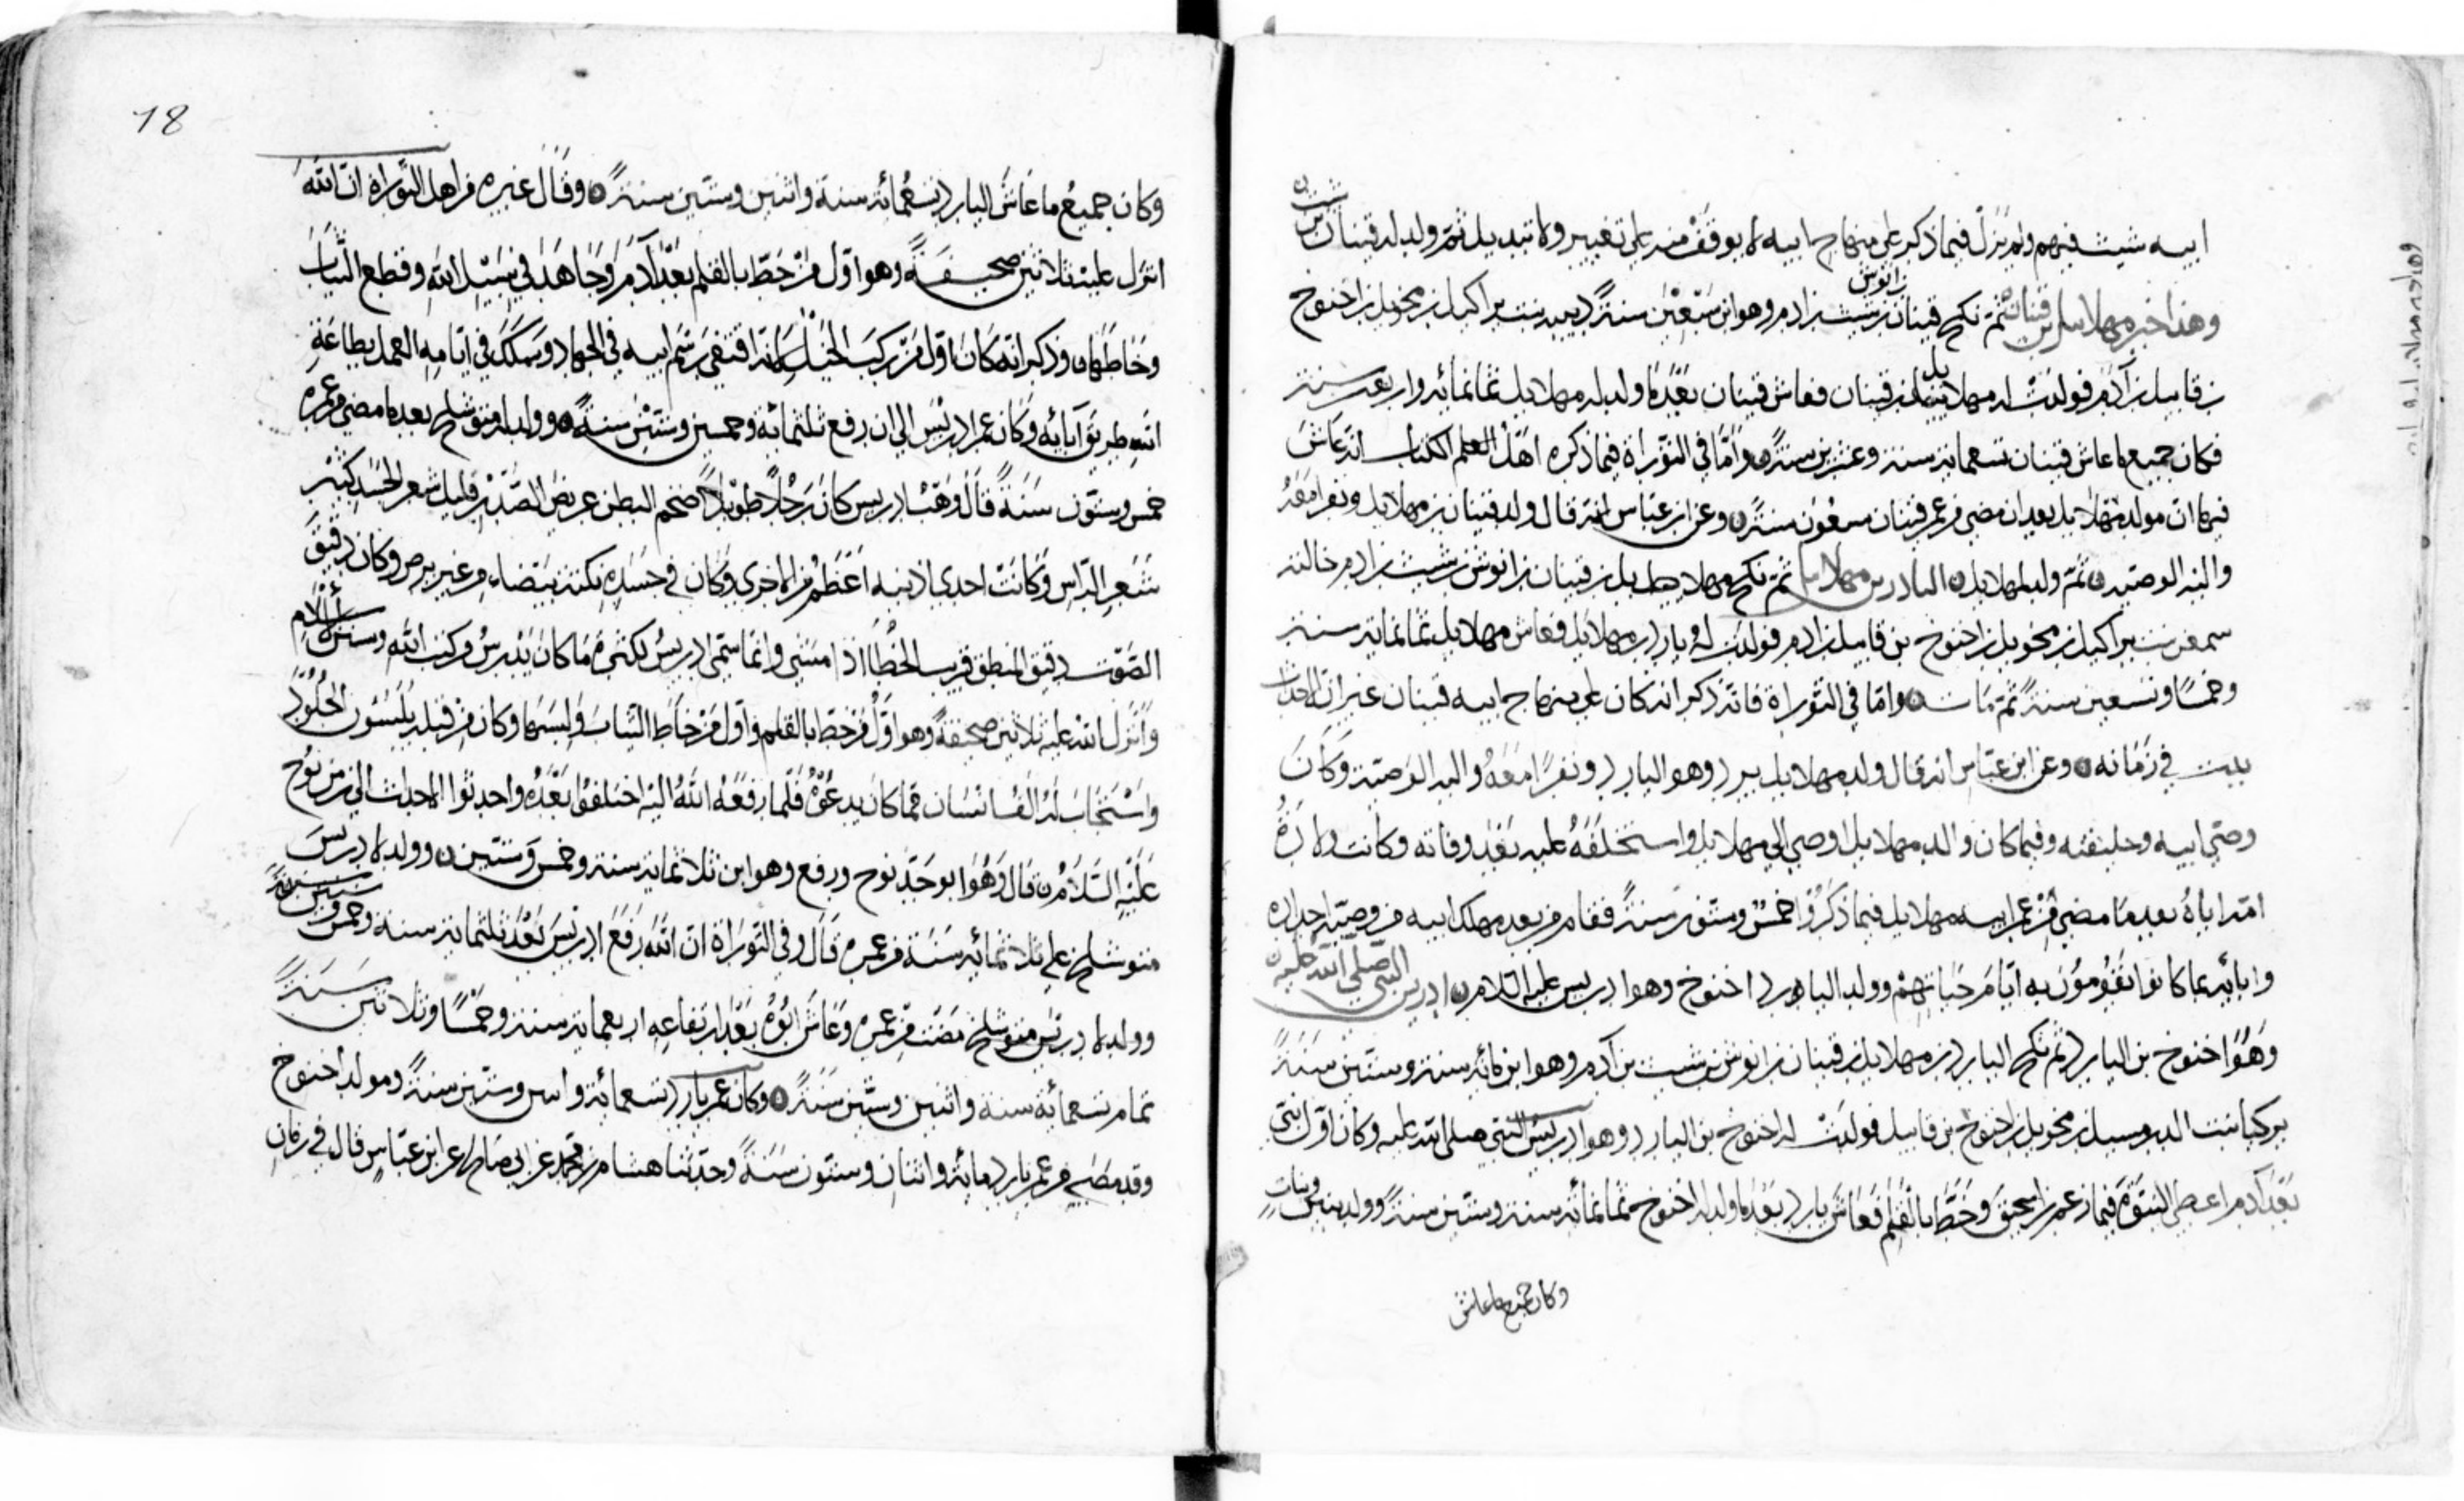 ابيه شيث فيهم ولم يزل فيما ذكر على منهاج ابيه لا يوقف منه على تغيير ولا تبديل ثم ولد له قينان
وهذا خبر مهلائيل بن قينان ثم نكح قينان بن انوش بن شيث بن ادم وهو ابن سبعين سنة دينه بنت براكيل بن محويل بن اخنوخ
بن قابيل بن آدم فولدت له مهلاييل بن قينان فعاش قينان بعد ما ولد له مهلاييل ثمانمائة واربعين سنة
فكان جميع ما عاش قينان تسعماية سنة وعشرين سنة واما في التوراة فيما ذكره اهل العلم الكتاب انه عاش
فيها ان مولد مهلاييل بعد ان مضى من عمر قينان سبعون سنة وعن ابن عباس انه قال ولد قينان مهلاييل ونفرا معه
واليه الوصية ثم ولد لمهلاييل اليارد بن مهلاييل ثم نكح مهلاييل بن قينان بن انوش بن شيث بن ادم خالته
سمعن بنت براكيل بن محويل بن اخنوخ بن قابيل بن ادم فولدت له يارد بن مهلاييل فعاش مهلاييل ثمانماية سنة
وخمسا وتسعين سنة ثم مات واما في التوراة فانه ذكر انه كان على منهاج ابيه قينان غير ان الاحداث
بدت في زمانه وعن ابن عباس انه قال ولد مهلاييل يرد وهو اليارد ونفرا معه واليه الوصية وكان
وصي ابيه وخليفته وفيما كان والد مهلاييل اوصى الى مهلاييل واستخلفه عليه بعد وفاته وكانت ولادة
امه اياه بعد ما مضى من عمر ابيه مهلاييل فيما ذكروا خمس وستون سنة فقام من بعد مهلك ابيه من وصية اجداده
وابائه بما كانوا يقومون به ايام حياتهم وولد اليارد اخنوخ وهو ادريس عليه السلام ادريس النبي صلى الله عليه
وهو اخنوخ بن اليارد ثم نكح اليارد بن مهلاييل بن قينان بن انوش بن شيث بن آدم وهو ابن مائة سنة وستين سنة
بركيا بنت الدرمسيل بن محويل بن اخنوخ بن قابيل فولدت له اخنوخ بن اليارد وهو ادريس النبي صلى الله عليه وكان اول نبي
بعد آدم اعطي النبوة فيما زعم بن اسحق وخط بالقلم فعاش يارد بعد ما ولد له اخنوخ ثمانمائة سنة وستين سنة وولد بنين وبنات
وكان جميع ما عاش
18
وكان جميع ما عاش اليارد تسعمائة سنة واثنين وستين سنة وقال غيره من اهل التوراة ان الله
انزل عليه ثلاثين صحيفة وهو اول من خط بالقلم بعد آدم وجاهد في سبيل الله وقطع الثياب
وخاطها وذكر انه كان اول من ركب الخيل لانه اقتفى رسم ابيه في الجهاد وسلك في ايامه العمل بطاعة
الله طريق آبائه وكان عمر ادريس الى ان رفع ثلثمائة وخمسين وستين سنة وولد له متوشلخ بعد ما مضى من عمره
خمس وستون سنة قال وهب ادريس كان رجلا طويلا ضخم البطن عريض الصدر قليل شعر الجسد كثير
شعر الراس وكانت احدى اذنيه اعظم من الاخرى وكان في جسده نكتة بيضاء من غير برص وكان رقيق
الصوت دقيق المنطق قريب الخطا اذا مشى وانما سمي ادريس لكثرة ما كان يدرس من كتب الله وسنن الاسلام
وانزل الله عليه ثلاثين صحيفة وهو اول من خط بالقلم واول من خاط الثياب ولبسها وكان من قبله يلبسون الجلود
واستجاب له الف انسان مما كان يدعوه فلما رفعه الله اليه اختلفوا بعده واحدثوا الاحداث الى زمن نوح
عليه السلام قال وهو ابو جد نوح ورفع وهو ابن ثلاثماية سنة وخمس وستين وولد لادريس
متوشلخ على ثلاثمائة سنة من عمره قال وفي التوراة ان الله رفع ادريس بعد ثلثماية سنة وخمس وستين سنة
وولد لادريس متوشلخ مضت من عمره وعاش ابوه بعد ارتفاعه اربعماية سنة وخمسا وثلاثين سنة
تمام تسعمائة سنة واثنين وستين سنة وكان عمر يارد تسعمائة واثنين وستين سنة ومولد اخنوخ
وقد مضى من عمر يارد مائة واثنان وستون سنة وحدثنا هشام بن محمد عن ابي صالح عن ابن عباس قال في زمان